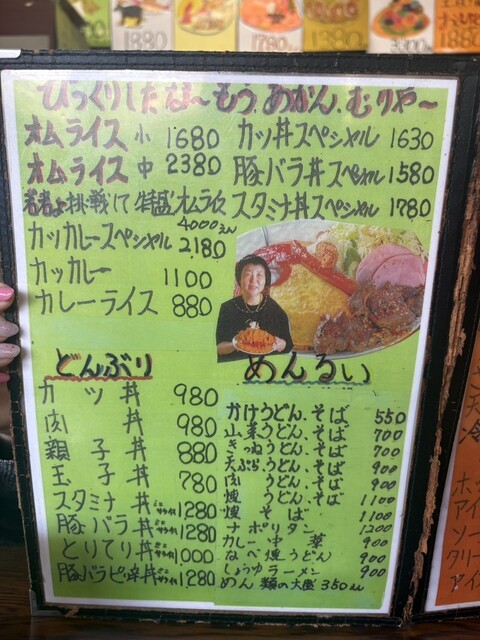 1880
1780
1380
2300
1880
びっくりしたな〜もう、あかん、むりや〜
オムライス 小 1680
オムライス 中 2380
若者よ挑戦して 特盛オムライス
4000えん
カツカレースペシャル 2180
カツカレー 1100
カレーライス 880
カツ丼スペシャル 1630
豚バラ丼スペシャル 1580
スタミナ丼スペシャル 1780
どんぶり
カツ丼 980
肉丼 980
親子丼 880
玉子丼 780
スタミナ丼 1280
豚バラ丼 1280
とりてり丼 1,000
豚バラピリ辛丼 1280
めんるい
かけうどん、そば 550
山菜うどん、そば 700
きつねうどん、そば 700
天ぷらうどん、そば 900
肉うどん、そば 900
焼うどん、そば 1100
焼そば 1100
ナポリタン 1200
カレー中華 900
なべ焼うどん 900
しょうゆラーメン 900
めん類の大盛 350えん
天
冷
ホッ
アイ
ソー
クリー
アイ